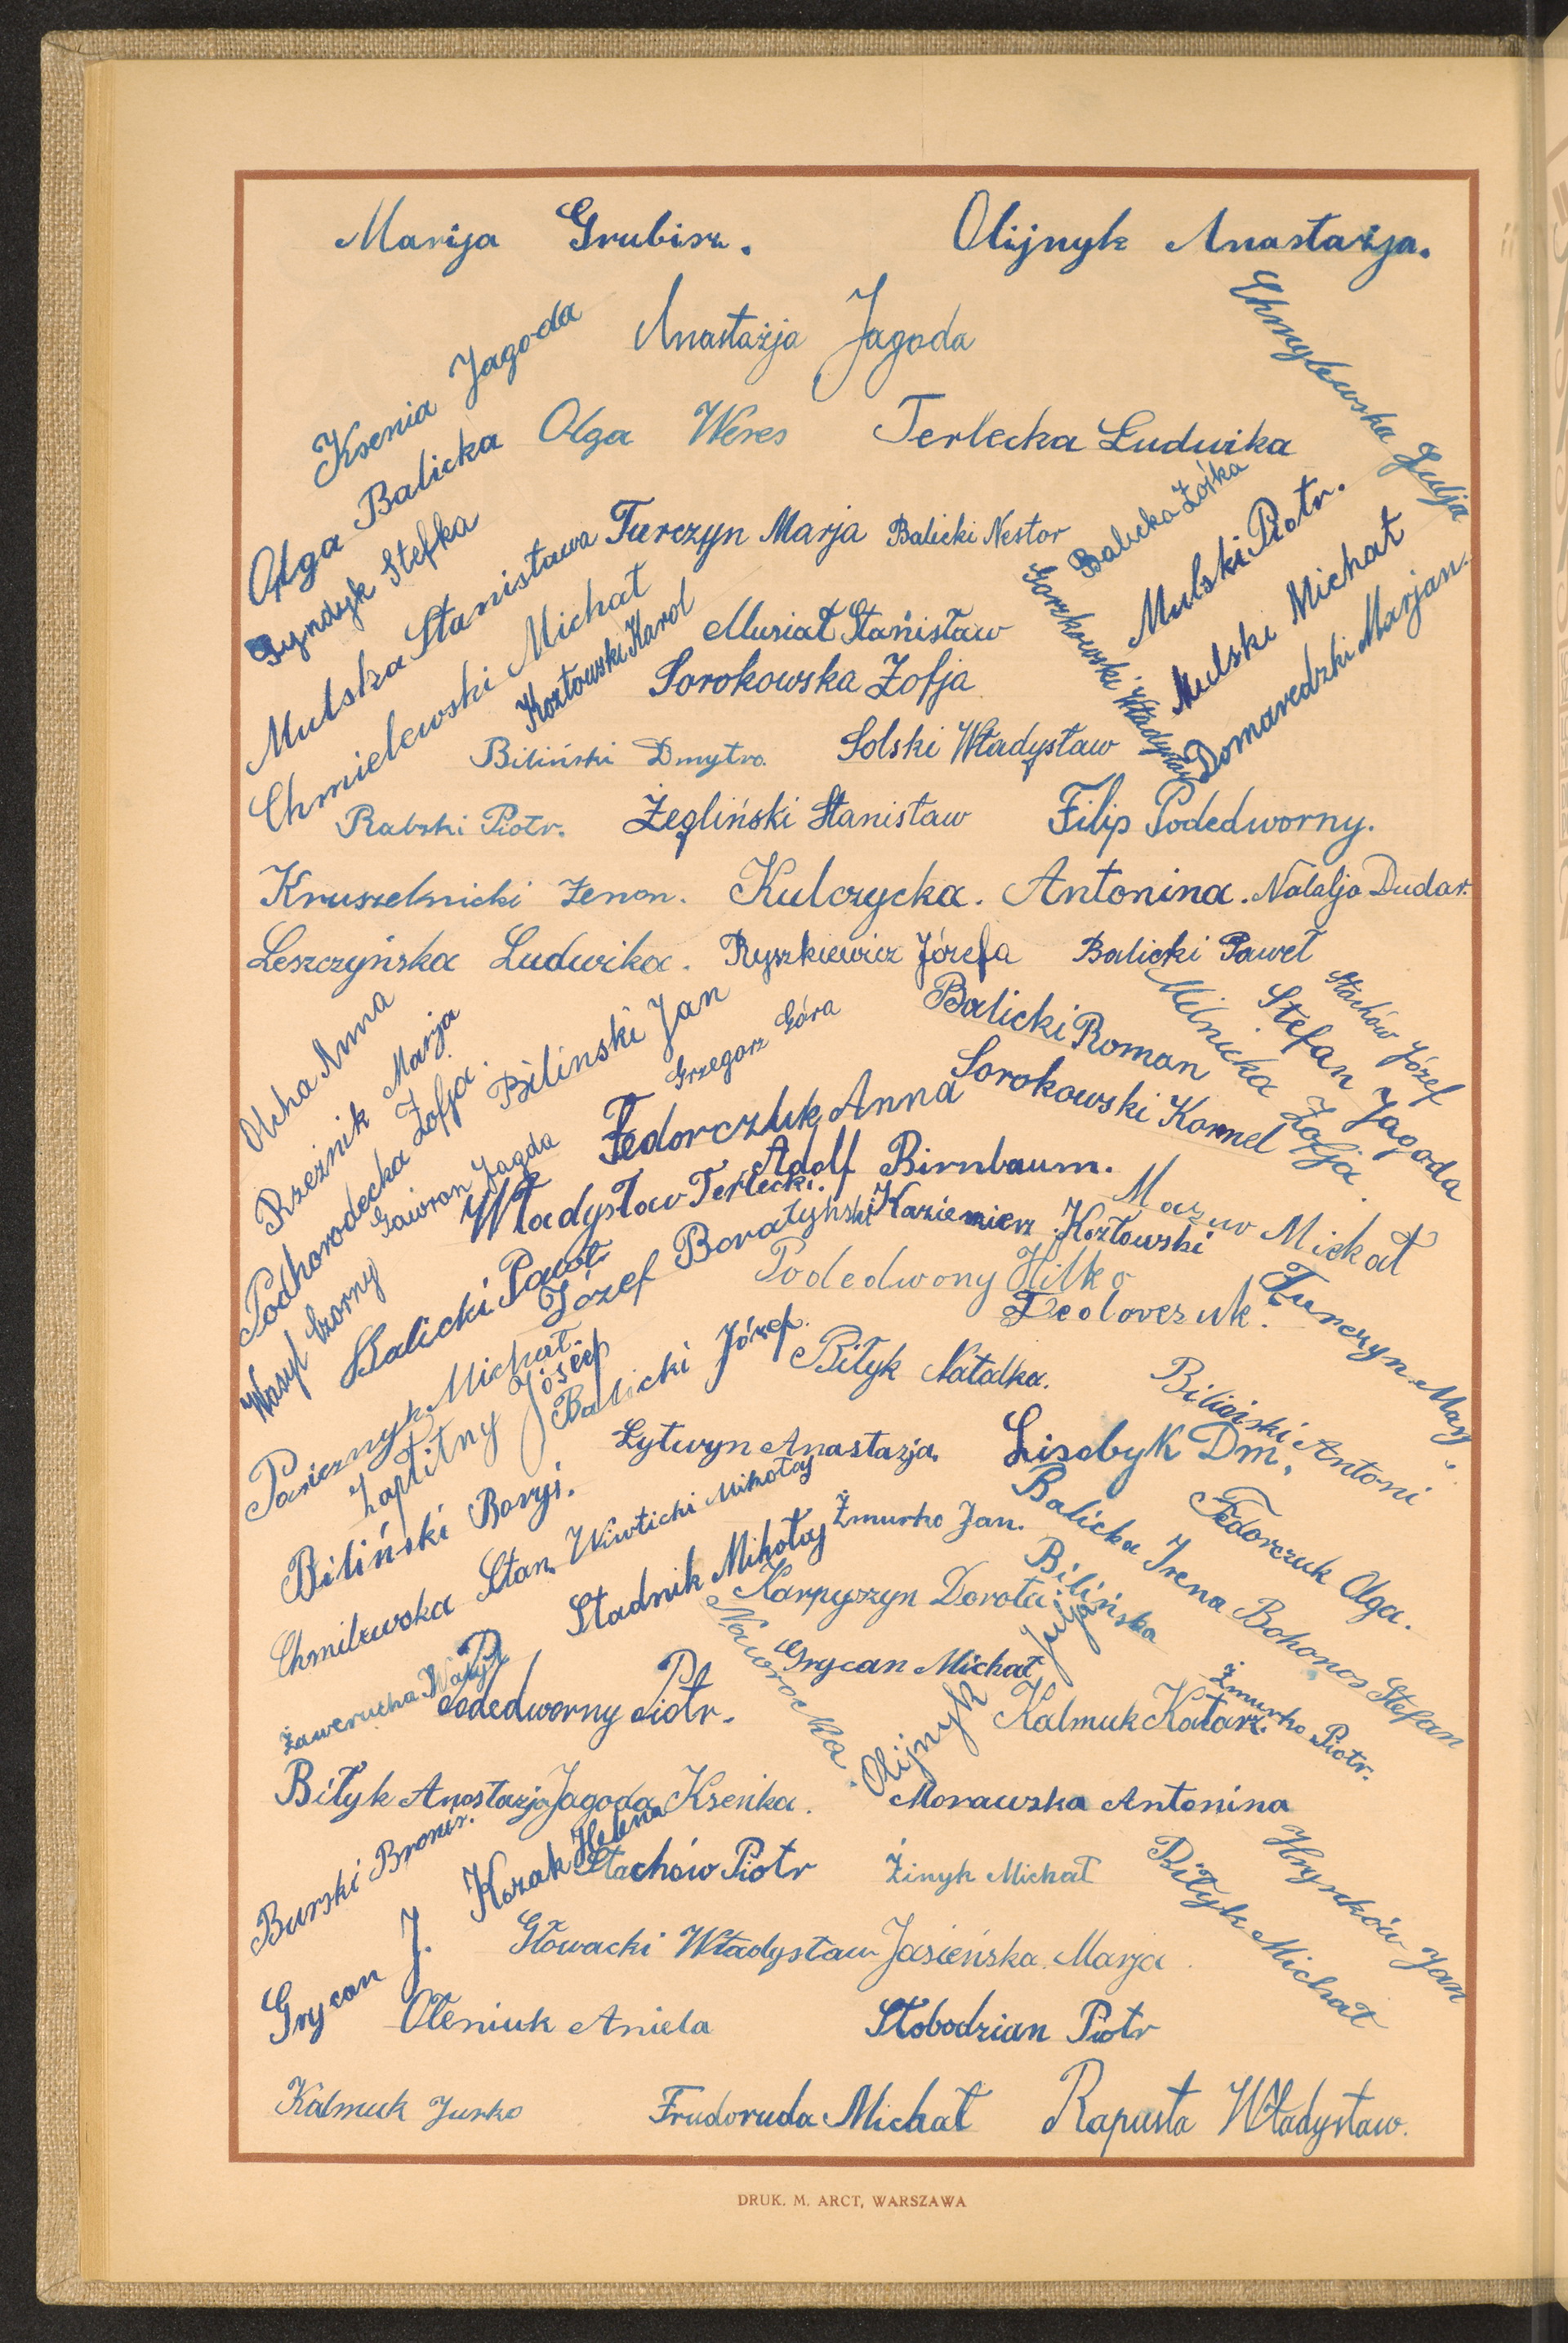 Marija Grubisz.
Olijnyk Anastazja.
Ksenia Jagoda
Anastazja Jagoda
Chmylewska Julja
Olga Balicka
Olga Weres
Terlecka Ludwika
Stefka
Mulska Stanisława
Turczyn Marja
Balicki Nestor
Balicka Zośka
Mulski Piotr.
Chmielewski Michał
Kozłowski Karol
Musiał Stanisław
Gorzkowski Władysław
Mulski Michał
Sorokowska Zofja
Domaredzki Marjan.
Biliński Dmytro.
Solski Władysław
Rabski Piotr.
Żegliński Stanisław
Filip Podedworny.
Kruszelnicki Zenon.
Kulczycka. Antonina.
Natalja Dudar.
Leszczyńska Ludwika.
Ryszkiewicz Józefa
Balicki Paweł
Olcha Anna
Rzeźnik Marja
Podhorodecka Zofja.
Bilinski Jan
Grzegorz Góra
Balicki Roman
Milnicka Zofja.
Stefan Jagoda
Stachów Józef
Gawron Jagda
Fedorczuk Anna
Sorokowski Kornel
Adolf Birnbaum.
Władysław Terlecki.
Wasyl Czorny
Balicki Paweł
Józef Boratyński
Kazimierz Kozłowski
Mazur Michał
Podedwony Hilko
Turczyn Marj
Michał.
Zaplitny Jósep
Balicki Józef.
Biłyk Natalka.
Biliński Antoni
Biliński Borys.
Łytwyn Anastazja.
Lisobyk Dm.
Chmilewska Stan.
Mikołaj
Stadnik Mikołaj
Żmurko Jan.
Balicka Irena
Fedorczuk Olga.
Karpyszyn Dorota.
Bilińska
Bohonos Stefan
Zawerucha Wasyl
Podedworny Piotr.
Naworocka.
Grycan Michał
Olijnyk Julja
Kalmuk Katarz.
Żmurko Piotr.
Biłyk Anastazja
Jagoda Ksenka.
Morawska Antonina
Burski Bronis.
Kozak Helena
Stachów Piotr
Żinyk Michał
Biłyk Michał
Hryńków Jan
Grycan J.
Głowacki Władysław
Jasieńska Marja.
Ołeniuk Aniela
Słobodzian Piotr
Kalmuk Jurko
Frudoruda Michał
Rapusta Władysław.
DRUK. M. ARCT, WARSZAWA